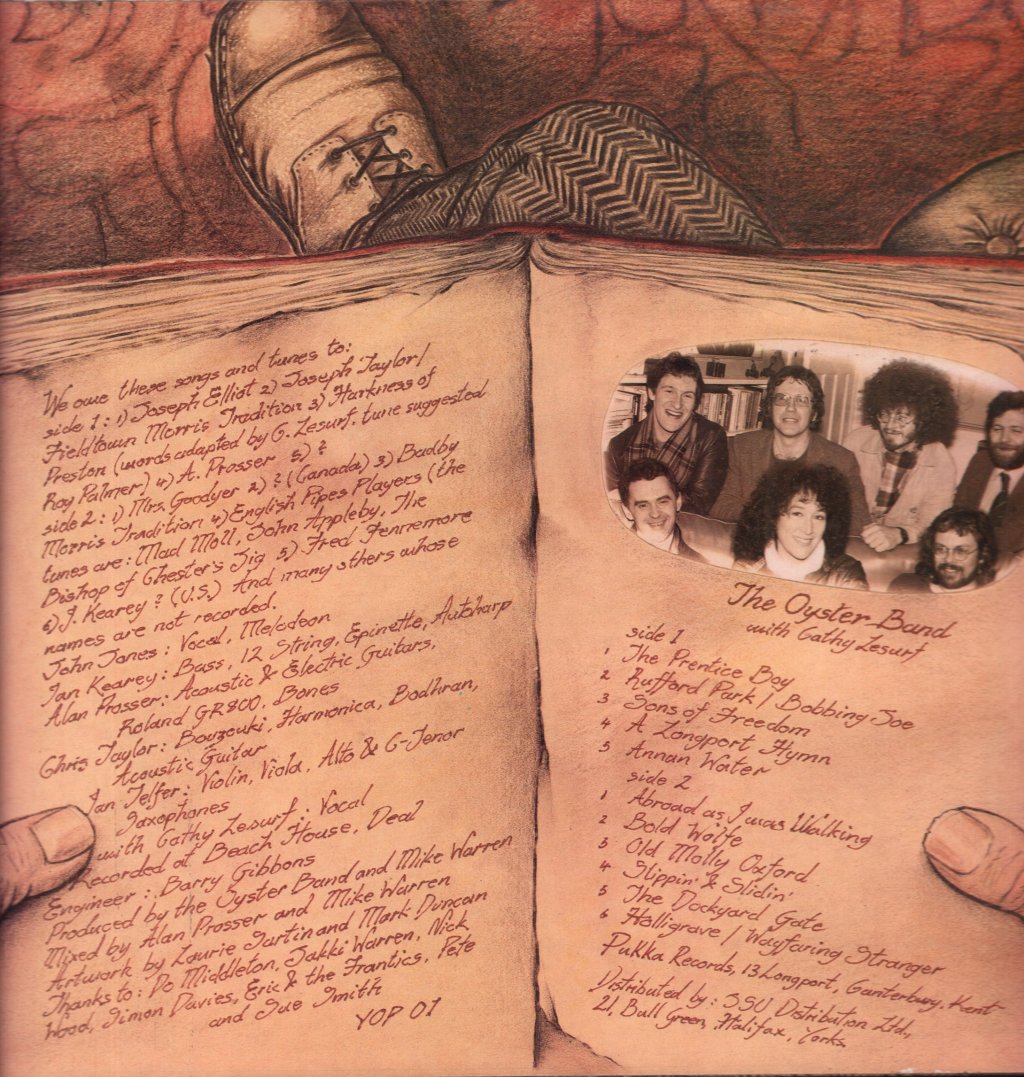 We owe these songs and tunes to:
side 1: 1) Joseph Elliot 2) Joseph Taylor/
Fieldtown Morris Tradition 3) Harkness of
Preston (words adapted by C. Lesurf, tune suggested
Roy Palmer) 4) A. Prosser 5) ?
side 2: 1) Mrs. Goodyer 2) ? (Canada) 3) Badby
Morris Tradition 4) English Pipes Players (the
tunes are: Mad Moll, John Appleby, The
Bishop of Chester's Jig 5) Fred Fennemore
6) J. Kearey ? (U.S.) And many others whose
names are not recorded.
John Jones: Vocal, Melodeon
Ian Kearey: Bass, 12 String, Epinette, Autoharp
Alan Prosser: Acoustic & Electric Guitars,
Roland GR800, Bones
Chris Taylor: Bouzouki, Harmonica, Bodhran,
Acoustic Guitar
Ian Telfer: Violin, Viola, Alto & C-Tenor
Saxophones
with Cathy Lesurf: Vocal
Recorded at Beach House, Deal
Engineer: Barry Gibbons
Produced by the Oyster Band and Mike Warren
Mixed by Alan Prosser and Mike Warren
Artwork by Laurie Sartin and Mark Duncan
Thanks to: Do Middleton, Jakki Warren, Nick
Wood, Simon Davies, Eric & the Frantics, Pete
and Sue Smith
YOP 01
The Oyster Band
with Cathy Lesurf
side 1
1 The Prentice Boy
2 Rufford Park / Bobbing Joe
3 Sons of Freedom
4 A Longport Hymn
5 Annan Water
side 2
1 Abroad as I was Walking
2 Bold Wolfe
3 Old Molly Oxford
4 Slippin' & Slidin'
5 The Dockyard Gate
6 Halligrave / Wayfaring Stranger
Pukka Records, 13 Longport, Canterbury, Kent
Distributed by: SSU Distribution Ltd.,
21, Bull Green, Halifax, Yorks.